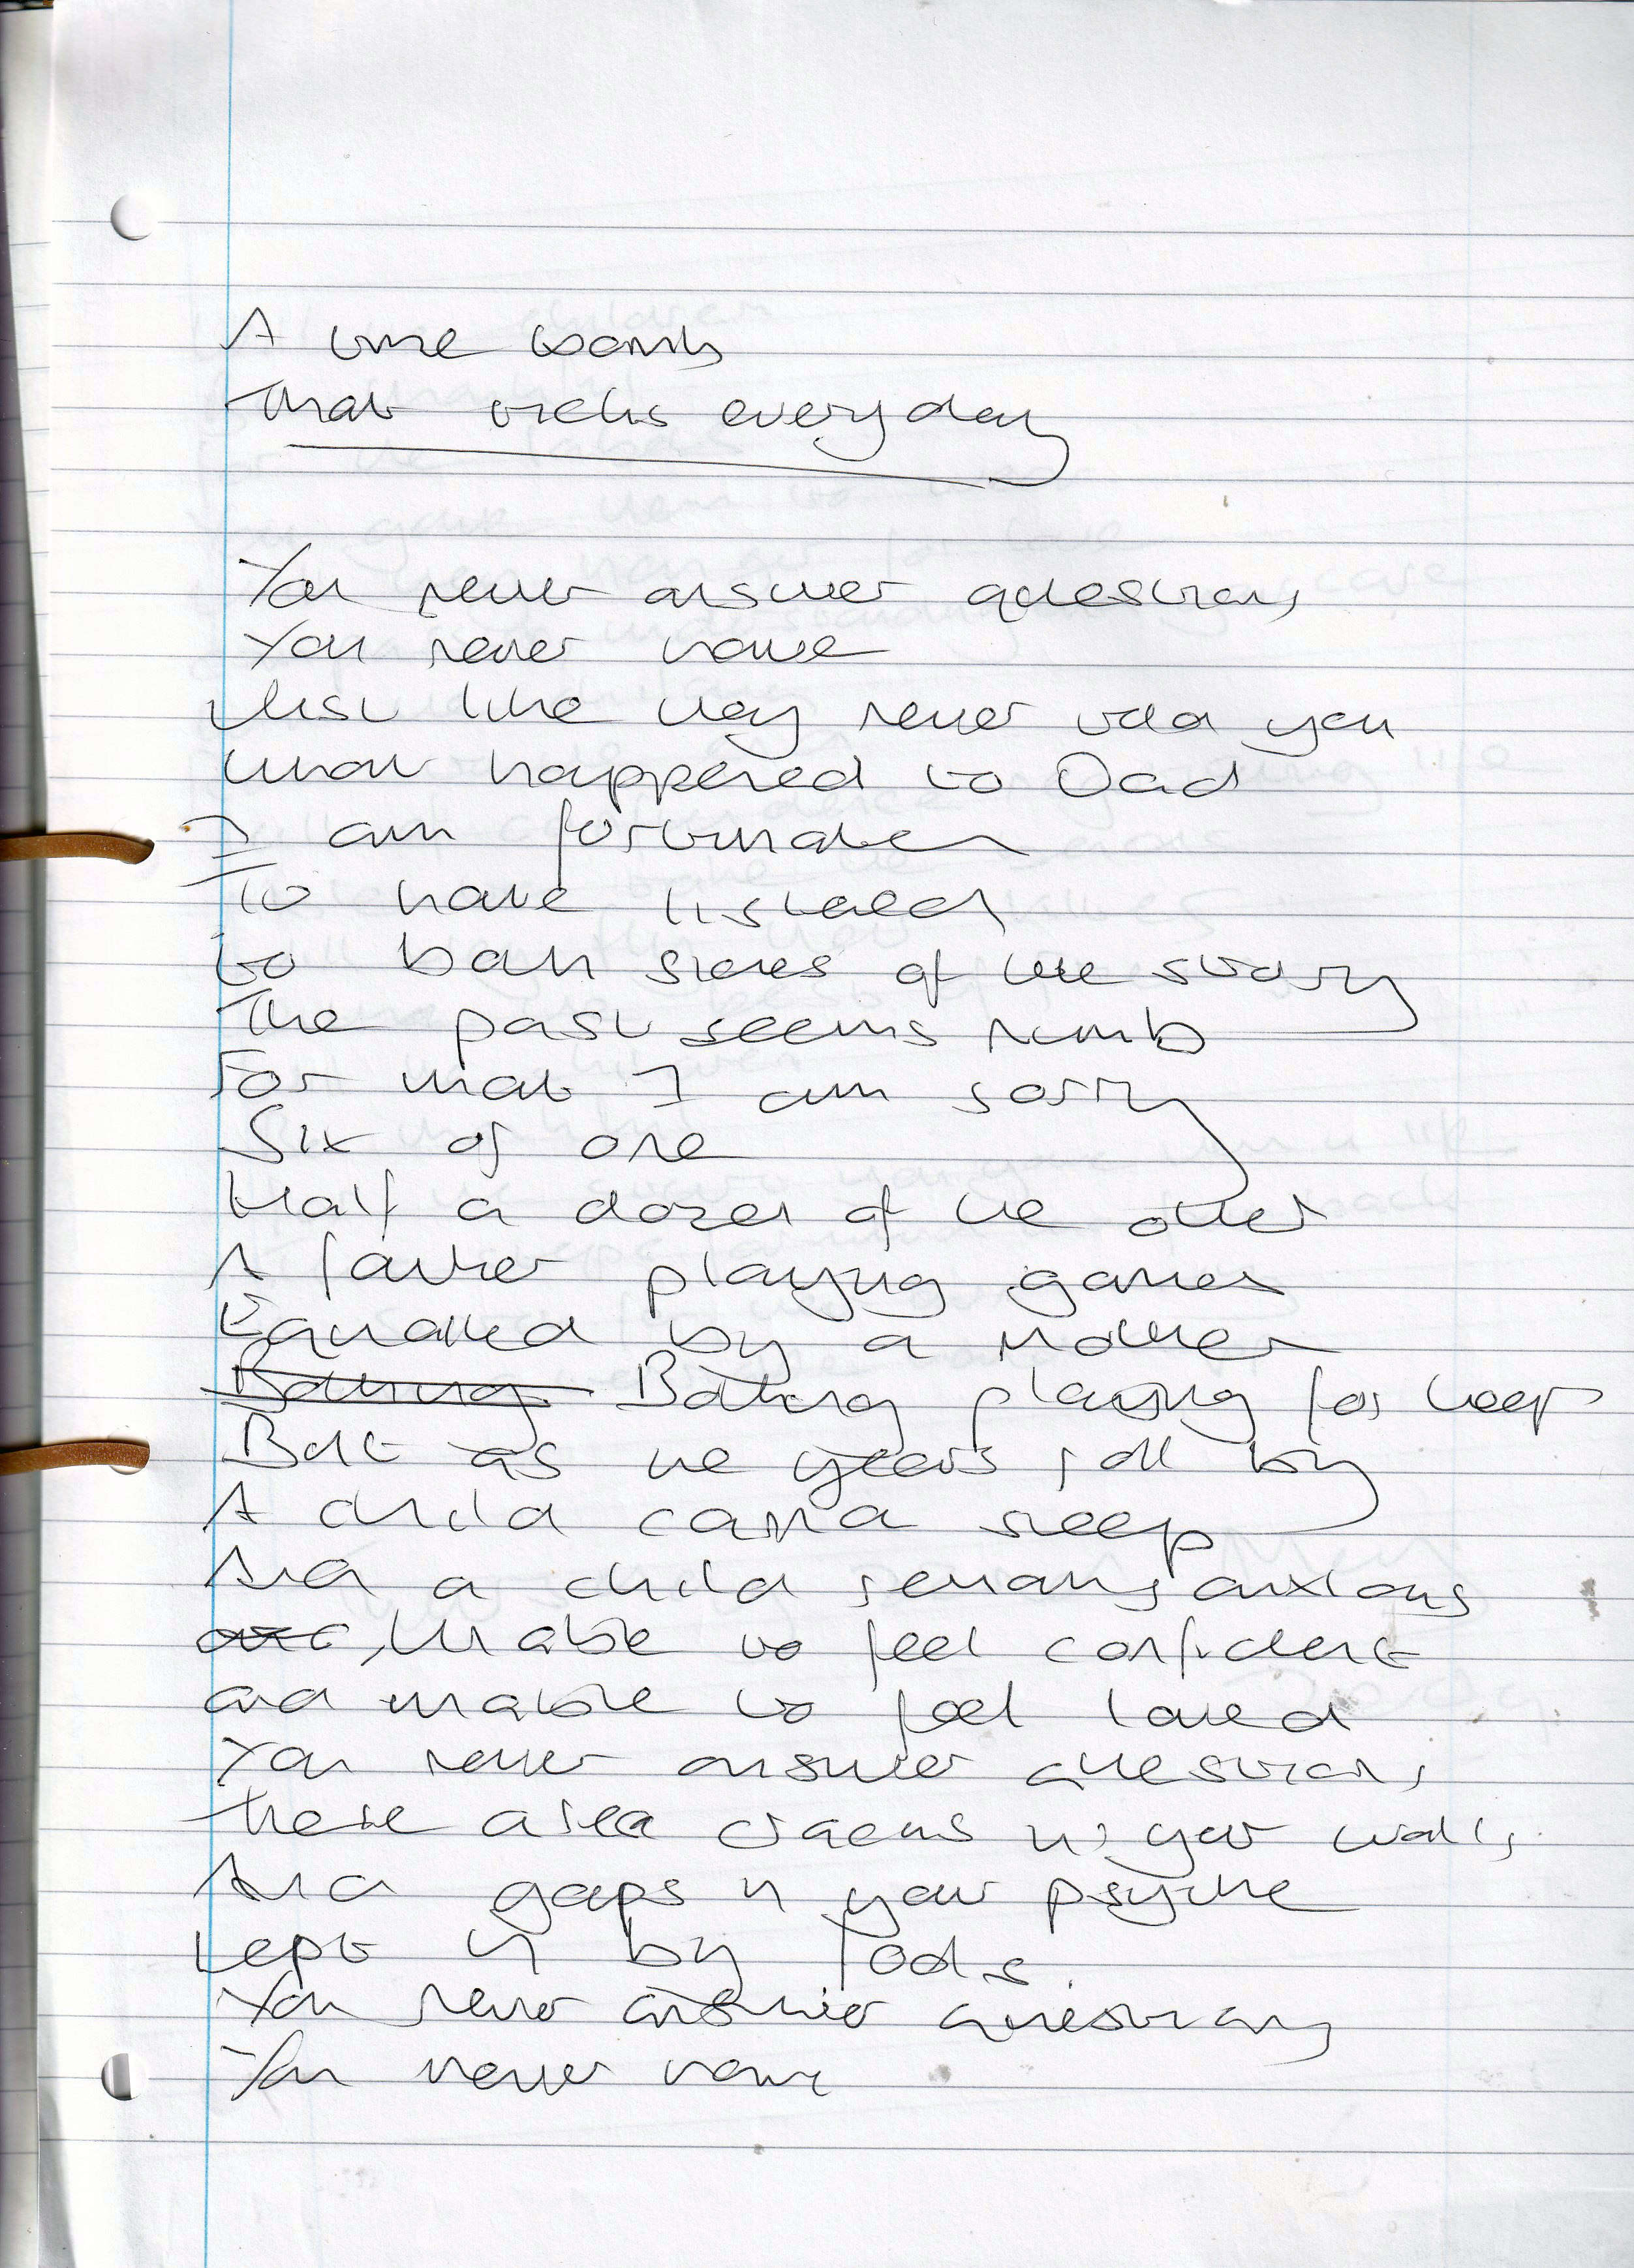 A time bomb
That ticks everyday
You never answer questions
You never have
Just like they never told you
What happened to Dad
I am fortunate
To have listened
to both sides of the story
The past seems numb
For that I am sorry
Six of one
Half a dozen of the other
A father playing games
Equalled by a mother
Bothing Bothing playing for keeps
But as the years roll by
A child cannot sleep
And a child remains anxious
Unable to feel confident
and unable to feel loved
You never answer questions
There are cracks in your walls
And gaps in your psyche
Kept in by fools.
You never answer questions
You never have